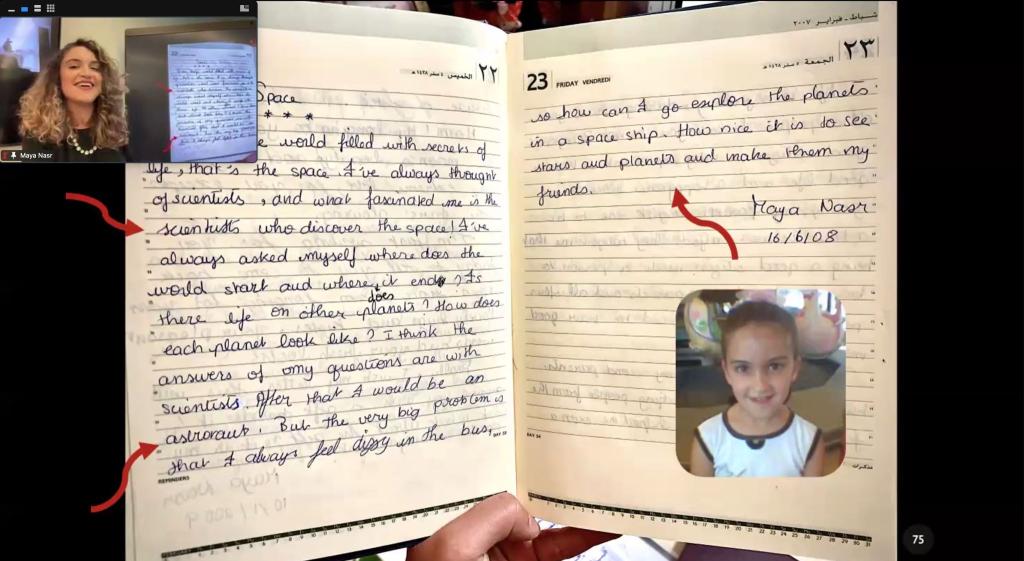 Maya Nasr
٢٢ الخميس
Space
* * *
e world filled with secrets of
life, that's the space. I've always throught
of scientists, and what fascinated me is the
scientists who discover the space! I've
always asked myself where does the
world start and where it end? Is
does
there life on other planets? How does
each planet look like? I think the
answers of my questions are with
scientists. After that I would be an
astronaut. But the very big problem is
that I always feel dizzy in the bus,
REMINDERS
شباط - فبراير ٢٠٠٧
٢٣ الجمعة
23 FRIDAY VENDREDI
so how can I go explore the planets
in a space ship. How nice it is to see
stars and planets and make them my
friends.
Maya Nasr
16/6/08
DAY 54
مذكرات
75